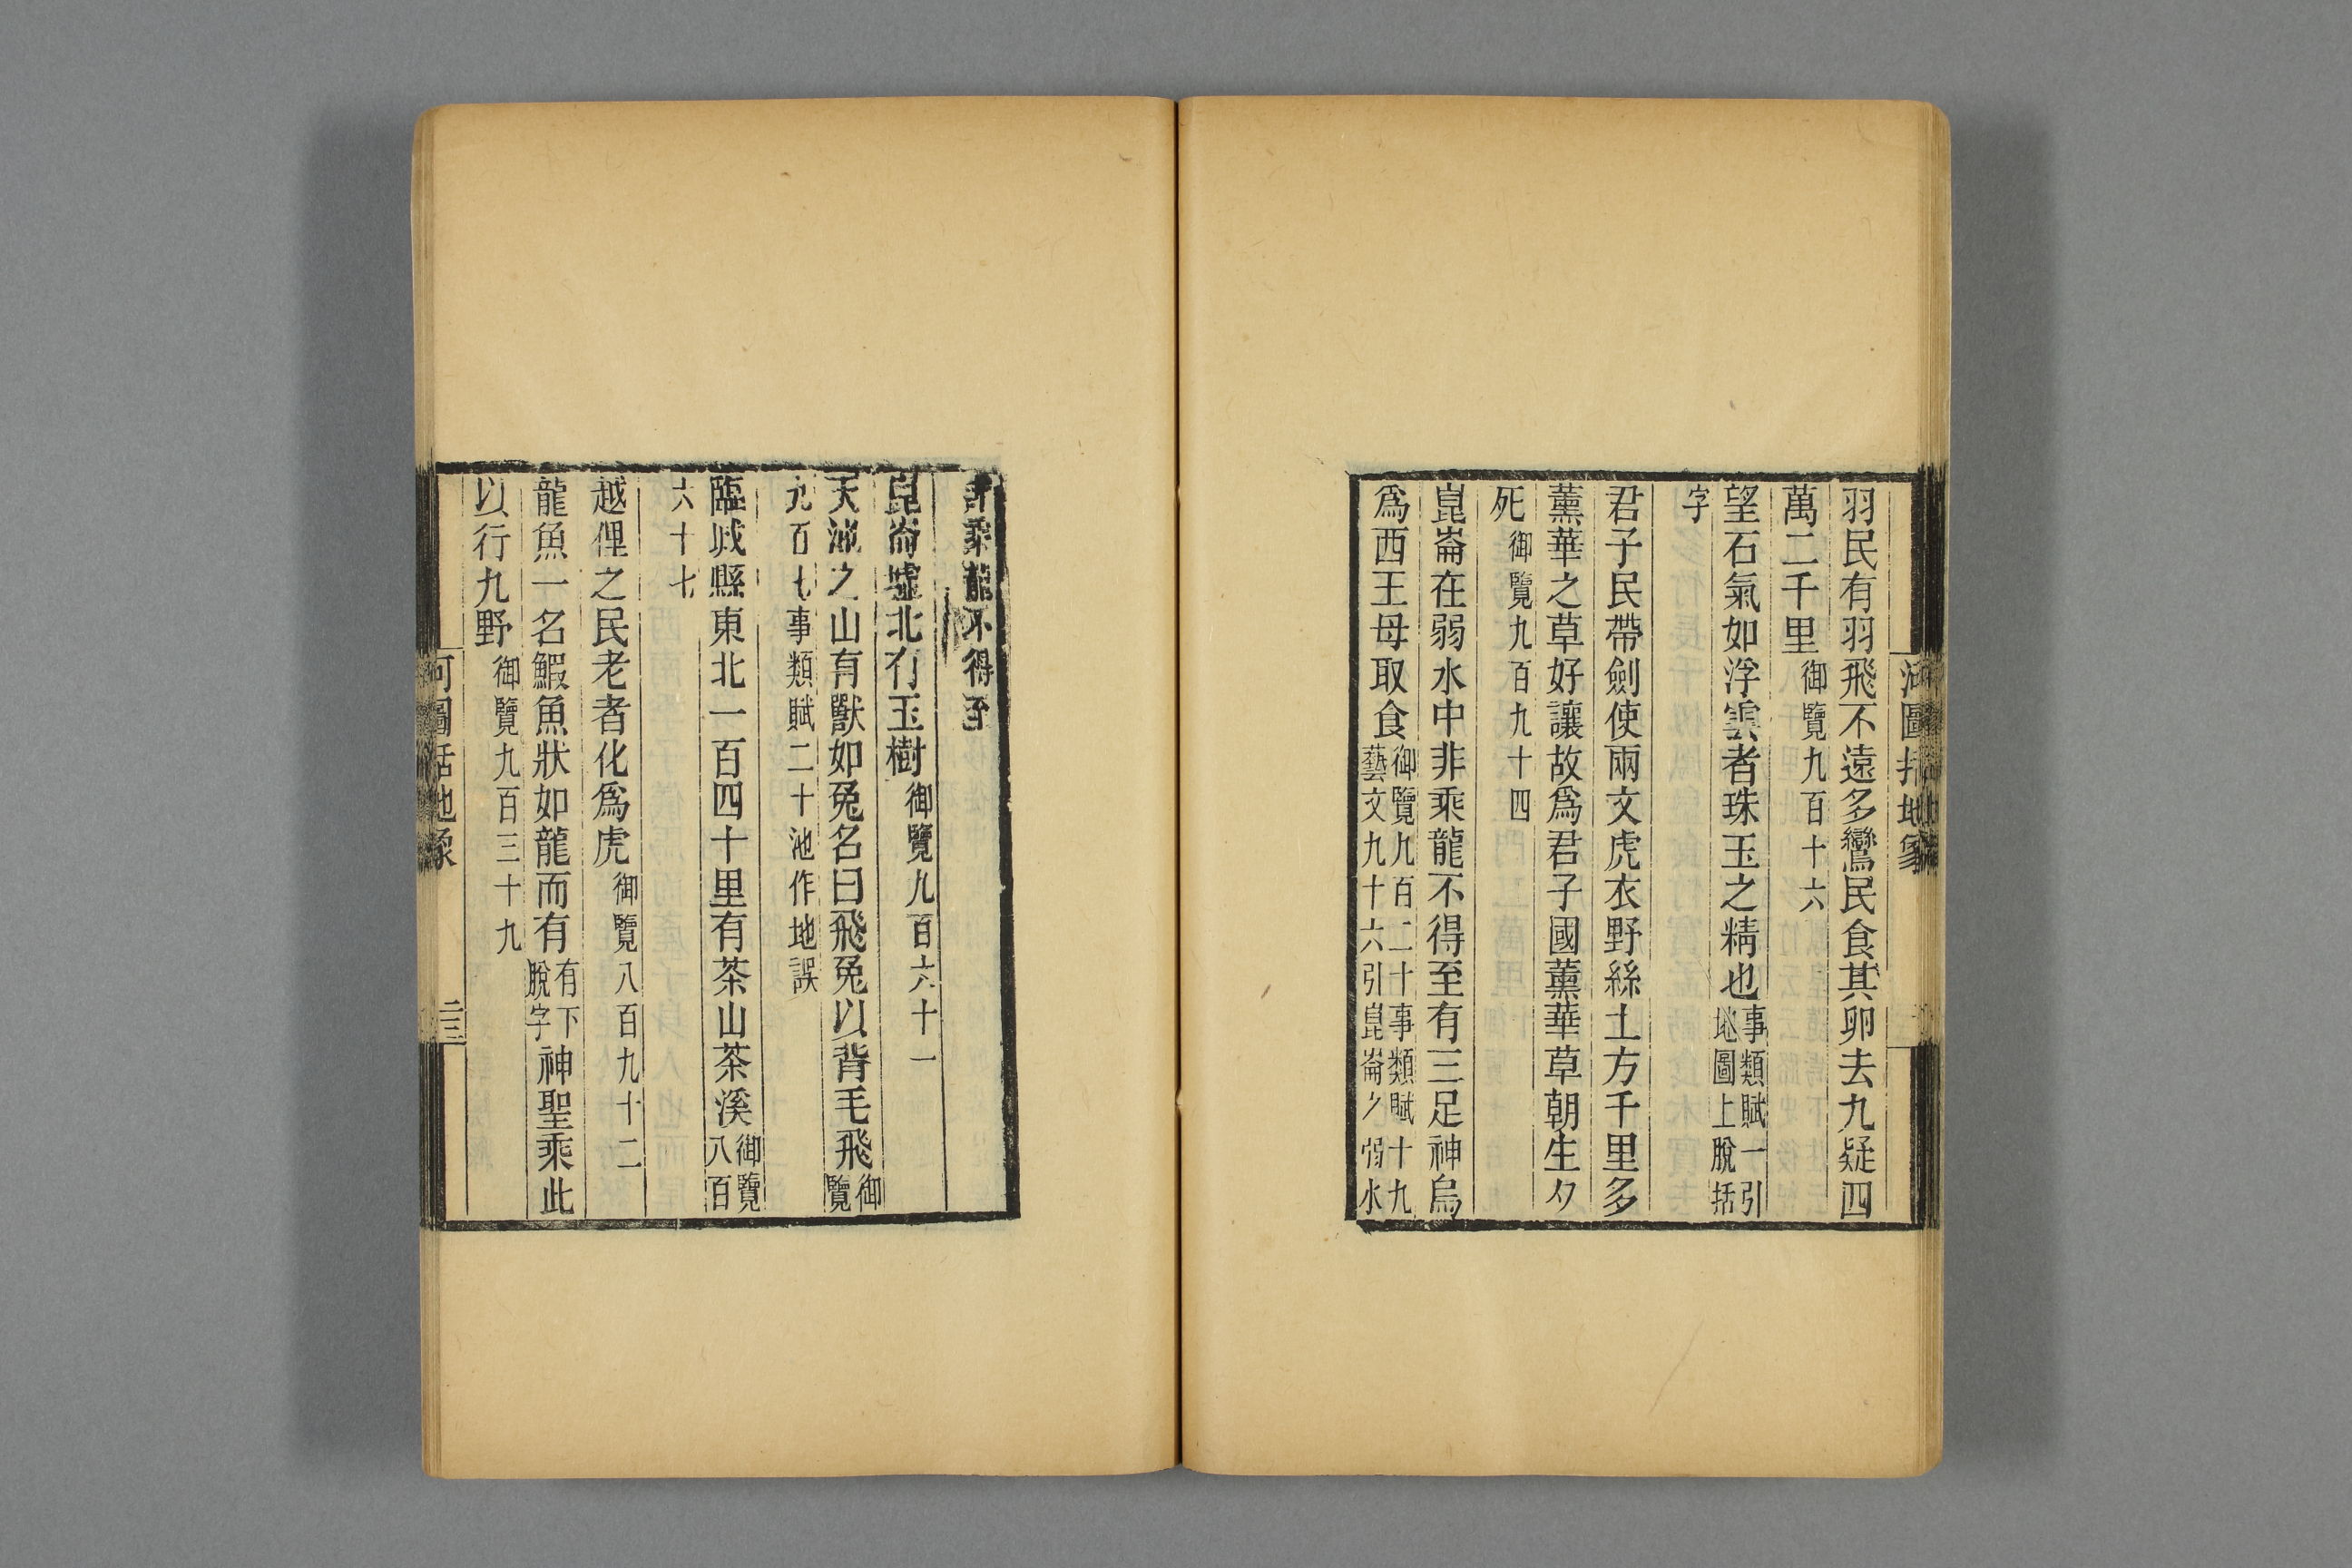 河圖括地象
羽民有羽飛不遠多鸞民食其卵去九疑四
萬二千里御覽九百十六
望石氣如浮雲者珠玉之精也事類賦一引地圖上脫括
字
君子民帶劍使兩文虎衣野絲土方千里多
薰華之草好讓故爲君子國薰華草朝生夕
死御覽九百九十四
崑崙在弱水中非乘龍不得至有三足神烏
爲西王母取食御覽九百二十事類賦十九藝文九十六引崑崙之弱水
非乘龍不得至
崑崙墟北有玉樹御覽九百六十一
天池之山有獸如兔名曰飛兔以背毛飛御覽
九百七事類賦二十池作地誤
臨城縣東北一百四十里有茶山茶溪御覽八百
六十七
越俚之民老者化爲虎御覽八百九十二
龍魚一名鰕魚狀如龍而有有下脫字神聖乘此
以行九野御覽九百三十九
河圖括地象
二三